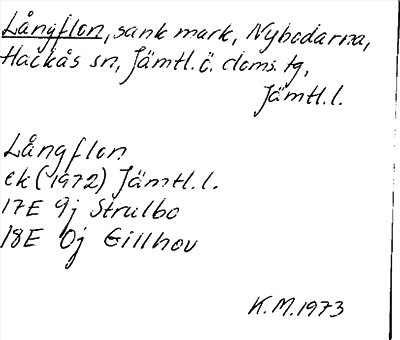 Långflon, sank mark, Nybodarna,
Hackås sn, Jämtl. ö. doms. tg,
Jämtl. l.
Långflon
ek (1972) Jämtl. l.
17E 9j Strulbo
18E 0j Gillhov
K.M. 1973